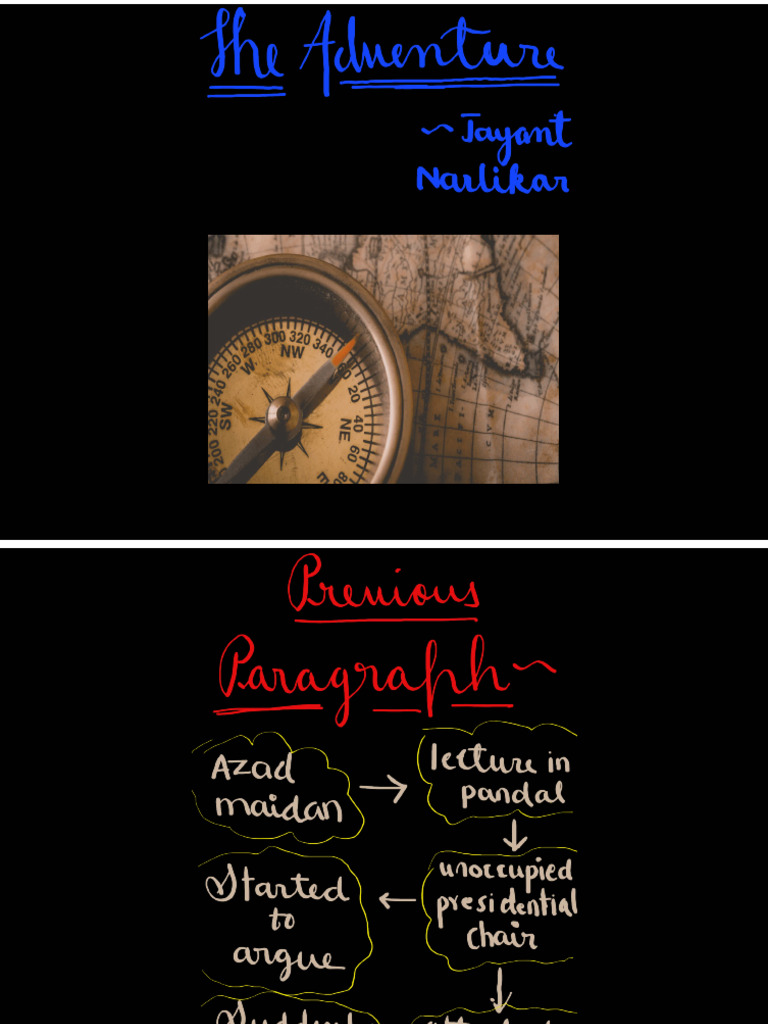 The Adventure
~ Jayant
Narlikar
200 220 240 260 280 300 320 340 20 40 60 80
SW W NW NE E
Previous
Paragraph~
Azad
maidan
lecture in
pandal
unoccupied
presidential
chair
Started
to
argue